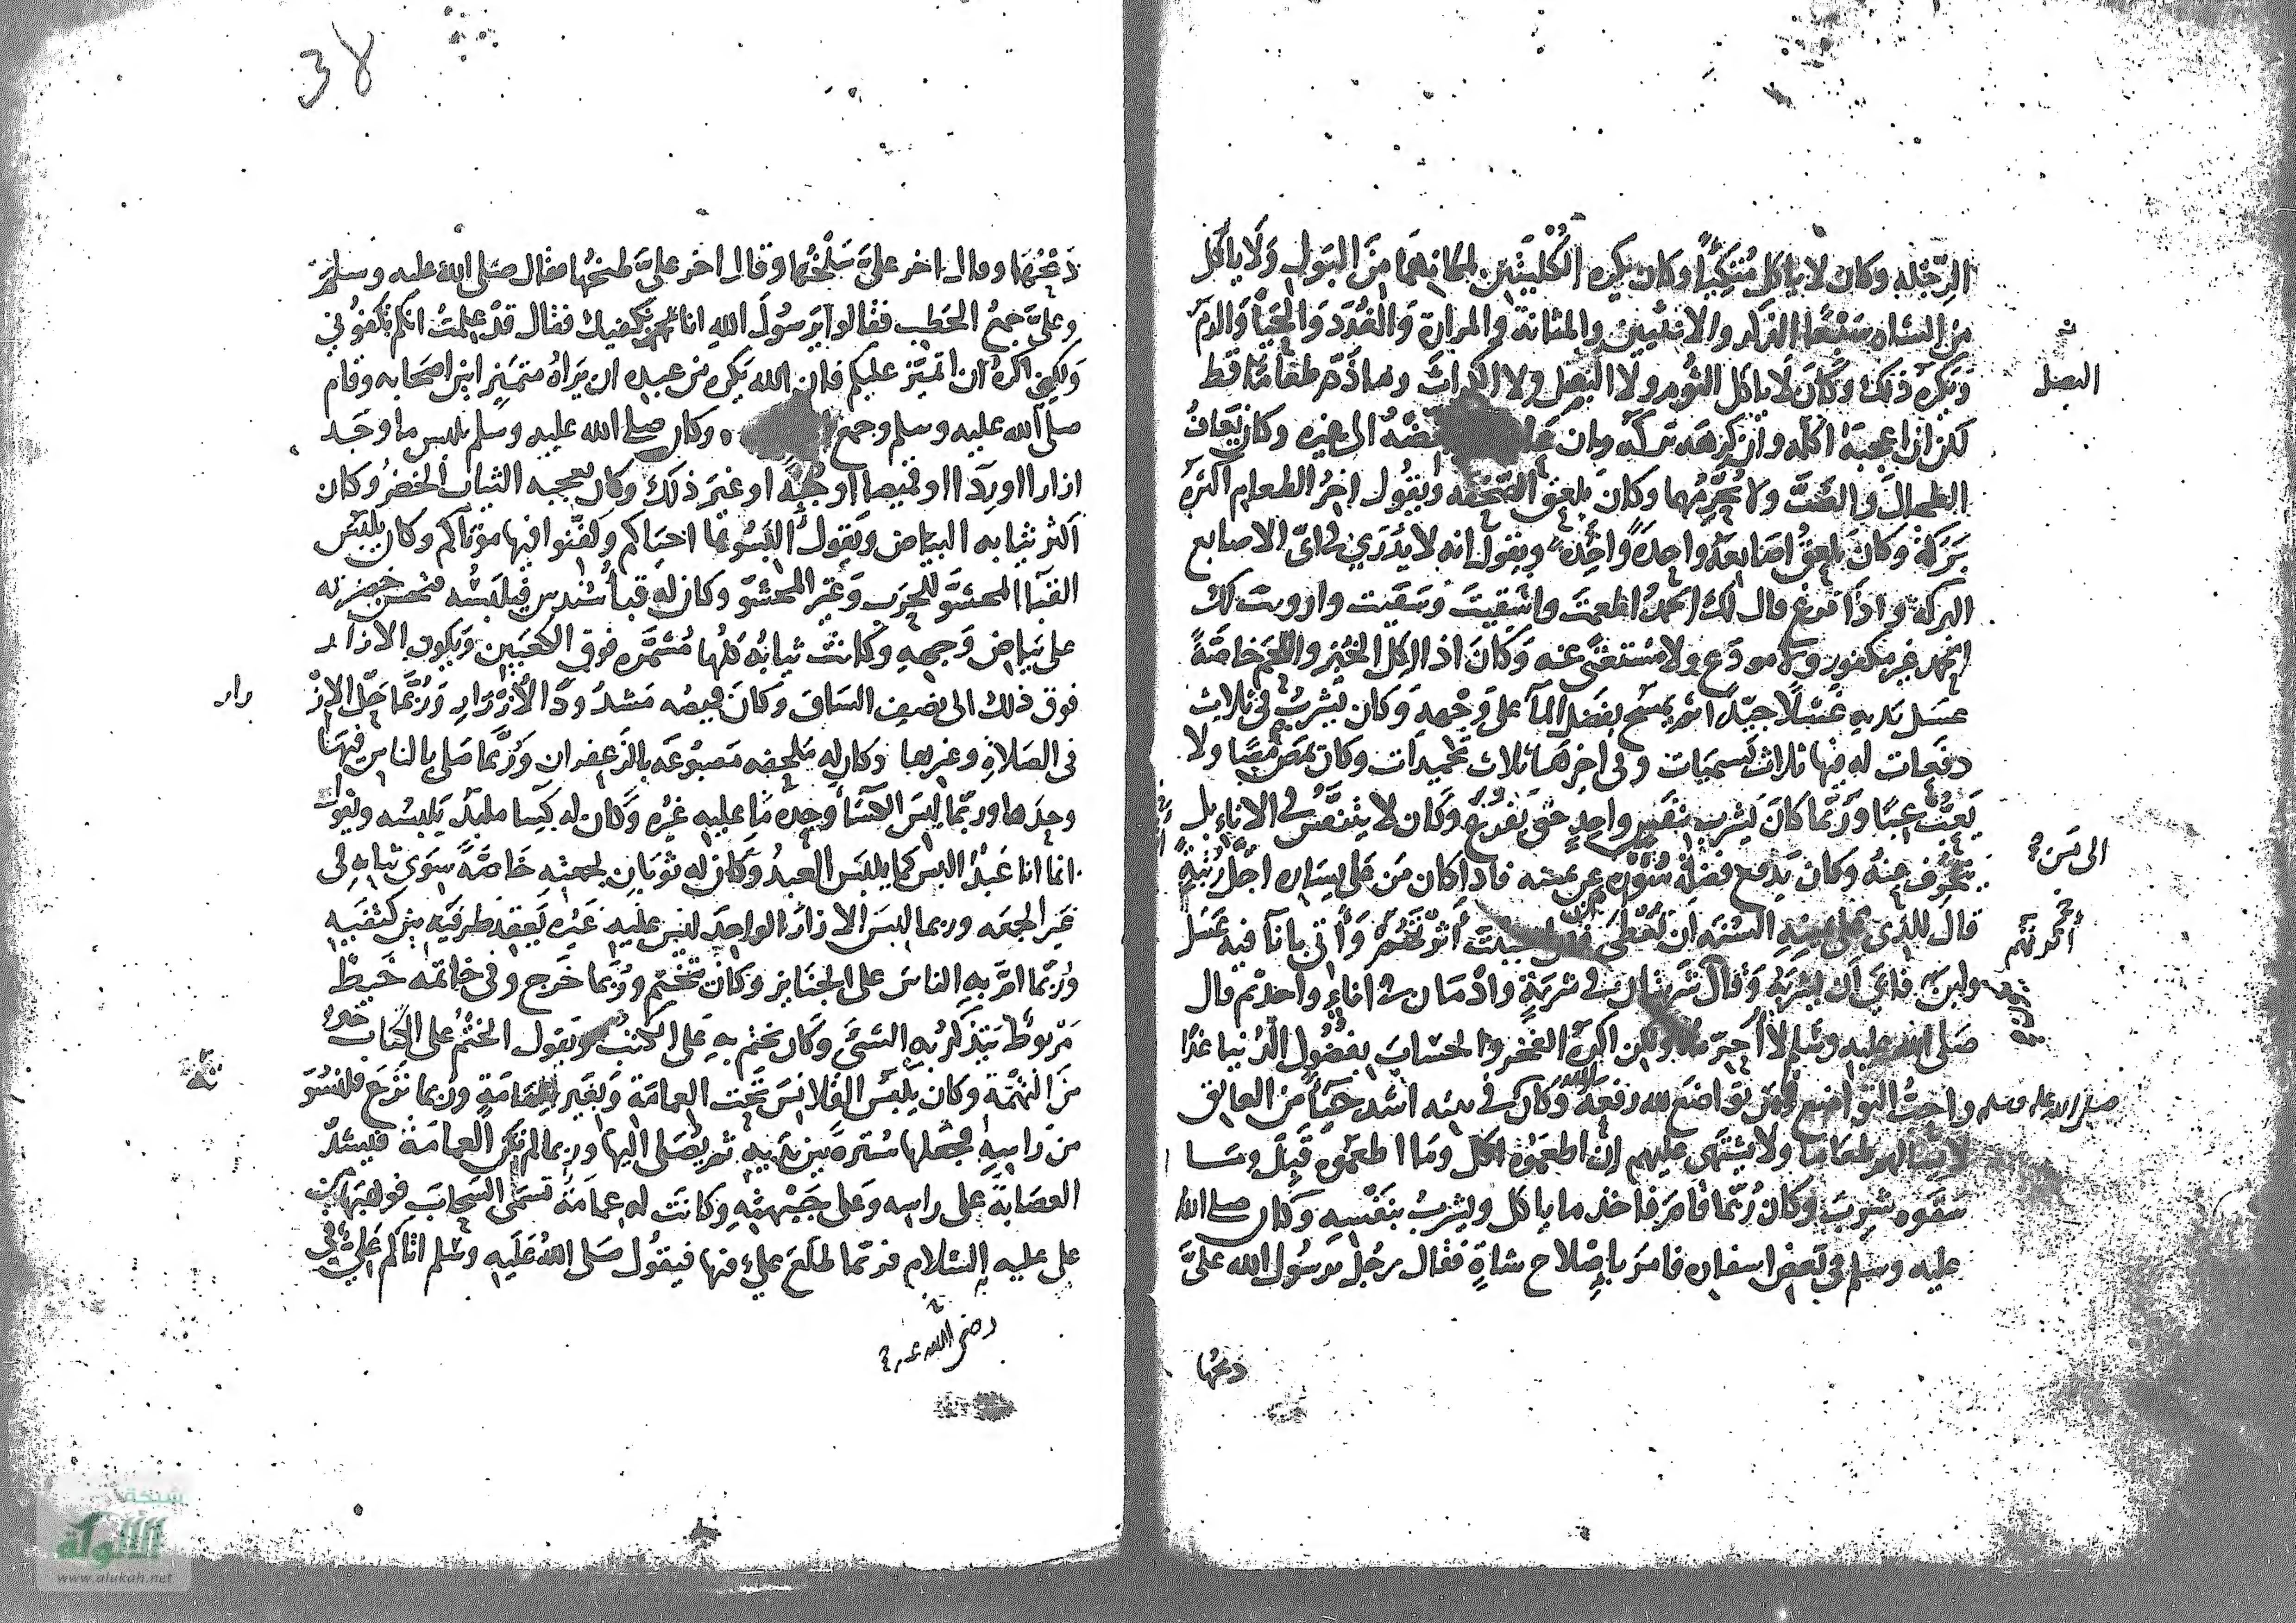 الرِّجْلَه وكان لا ياكل مُتَّكِئًا وكان يكره الكُلْيَتَيْن لمكانهما مِنَ البَول وَلَا ياكل
من الشاه سَبْعًا الذكر والانثيين والمثانة والمرارة وَالغُدَدَ وَالحَيَا وَالدَّمَ
وَيَكْرَه ذلك وَكَانَ لَا ياكل الثُّوم ولا البَصَل ولا الكراثَ وما ذَمَّ طعامًا قط
لكن ان اعجبهُ اكله وان كرهه تركه وان
الى غيره وكان يَعَافُ
الطحالَ والضَّبَّ ولا يُحَرِّمُهما وكان يلعق الصَّحْفَه ويَقُول اخرُ الطعام اكثره
بَرَكَةً وَكَانَ يلعقُ اصَابِعَهُ واحِدَةً واحِدَةً ويقول انه لا يَدْرِي في اىّ الاصابع
البركه واذا فرغ قال لك الحمدُ اطعمتَ واسقيتَ وسقيت وارويت لك
الحمد غير مكفور ولا مودَّع ولا مُستغنًى عنه وَكَانَ اذا اكل الخُبْزَ واللَّحْمَ خاصَّةً
غسل يديه غَسْلًا جيّدًا ثم يَمسح بفضل المآ على وَجْهِهِ وَكان يَشْرَبُ في ثلاث
دفعات له فيها ثلاث تسميات وفى اخرها ثلاث تحميدات وكان يَمَصُّ مَصًّا ولا
يَعُبُّ عَبًّا وَرُبَّما كَانَ يَشرب بنَفَسٍ واحدٍ حتى يَفرُغ وَكان لا يتنفَّسُ في الاناء بل
ينحرف عنهُ وكان يَدفع فَضْلَةَ سُؤْرِه عن يمينه فاذا كان مَن على يساره اجَلَّ رُتْبَةً
قال للذى على يمينه السُّنّه ان تُعْطَى
وَأُتى بانآ فيه عَسَل
ولبن فابَى أَن يَشربَهُ وَقال شَرْبَتَان في شربةٍ وادمان في اناءٍ واحد ثم قال
صَلى الله عليه وسلم لا أُحرّمه ولكن اكره الفَخْر والحِسَابَ بفُضُول الدُّنيا غدًا
واحبُّ التواضع فمن تواضَع لله رفعهُ الله وَكان في بيته اشد حَيَآءً من العاتِق
لا يسألهم طعاما ولا يتشهى عليهم ان اطعَمُوهُ اكل وما اطعموه قَبِل وما
سَقَوه شَرِبَ وكان رُبَّما قَامَ فاخذ ما ياكل ويشربُ بنَفْسِهِ وكان صلى الله
عليه وسلم في بَعض اسفاره فامَر باصلاح شاةٍ فقال رجُل يا رسُول الله علىَّ
ذبحُها
البصل
الى مَن
صلى الله عليه وسلم
38
ذَبْحُهَا وقال اخر علىَّ سَلْخُها وقال اخر علىَّ طبخُها فقال صلى الله عليه وسلم
وعلىَّ جمعُ الحَطب فقالوا يَرسُولَ الله انا نكفيك فقال قدْ علِمتُ انكم تكفُوني
وَلكِنى اكرَهُ ان اتمَيَّز عليكم فان الله يكرَه مِن عبدِه ان يَراهُ متميِّزا بين اصحَابه وقام
صلى الله عليه وسلم وجمع
وكان صلى الله عليه وسلم يلبس ما وجَد
ازارا او ردآ او قميصا او جُبَّةً او غير ذلك وكان يعجبه الثياب الخضرُ وَكان
اكثر ثيابه البيَاض ويَقولُ البسُوها احياكم وكفِّنُوا فيها موتاكم وكان يلبَس
القبآ المحشوَّ للحَرب وَغَير المحشوّ وكان له قبا سُندس فيلبَسُه فتحسن خضرته
على بَيَاض وَجهِهِ وكانت ثيابُه كلُّها مُشَمَّره فوق الكعبَين وَيكون الازار
فوق ذلك الى نصف السَّاق وكانَ قميصُه مَشدُودَ الأَزْرَار وَرُبَّما حَلَّ الازْرار
في الصَلاةِ وغيرها وكان له مَلحفه مَصبُوغَه بالزَّعفران وَرُبَّما صَلى بالناس فيهَا
وحدَها وربّما لبس الكسَا وحدَه مَا عليه غيرُه وَكان له كَسا ملبّد يَلبسُه ويَقول
انما انا عَبْدٌ البس كما يلبس العبدُ وكان له ثوبَان لجمعتِه خَاصَّةً سِوَى ثيابه فى
غَير الجمعَه وربما لبسَ الازارَ الواحِدَ ليس عليه غَيرُه يَعقِد طرفيه بين كتفيه
وَرُبّما امّ به الناسَ على الجنايز وكان يتختّم وَرُبَّما خَرج وفى خاتمه خَيط
مَرْبوط يَتذكّرُ به الشئَ وَكان يختم به على الكتب ويَقول الخَتْمُ على الكتاب خير
مِن التُّهمَة وكان يَلبَس القَلانِسَ تَحتَ العمامَة وَبغَير العِمَامَةِ وربما نَزَع قلنسُوَ
من رَاسِه فجعَلها سُترَةً بين يَديهِ ثم يُصَلى اليها وربما لم تكن العمامَة فيشدّ
العصَابَةَ على راسِه وَعلى جَبْهتِهِ وكانت له عمامَة تسمّى السَّحَابَ فوهبَها مِن
على عليه السّلام فربّما طلَعَ علىٌّ فيها فيقُولُ صَلى الله عَلَيه وسَلم اتاكم عَلىٌّ في
رضى الله عنه
رار
شبكة
الألوكة
www.alukah.net